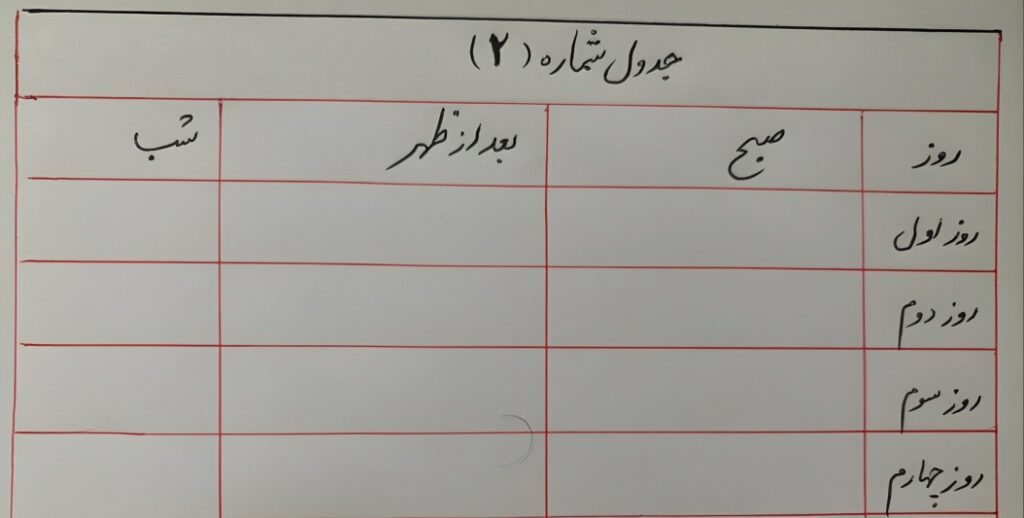 جدول شماره (۲)
روز صبح بعد از ظهر شب
روز اول
روز دوم
روز سوم
روز چهارم